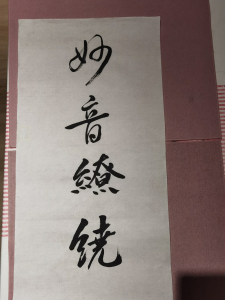 妙音繚繞